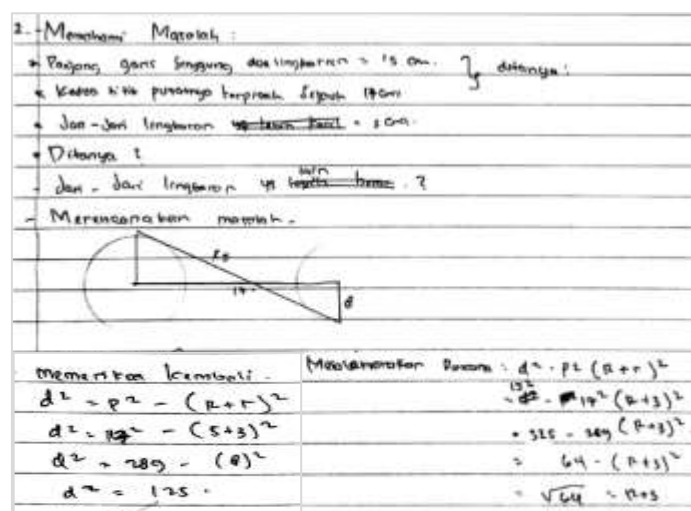 2. - Memahami Masalah :
* Panjang garis Singgung dua lingkaran = 15 cm. } ditanya :
* Kedua titik pusatnya terpisah Sejauh 17 cm
* Jari-Jari lingkaran = 3 cm.
* Ditanya ?
- Jari - Jari lingkaran yg lain . ?
- Merencanakan masalah .
15
17
8
memeriksa kembali .
d² = P² - (R+r)²
d² = 17² - (5+3)²
d² = 289 - (8)²
d² = 125 .
Melaksanakan Rencana : d² - P² (R+r)²
= 15² - 17² (R+3)²
= 325 - 289 (R+3)²
= 64 - (R+3)²
= √64 = R+3